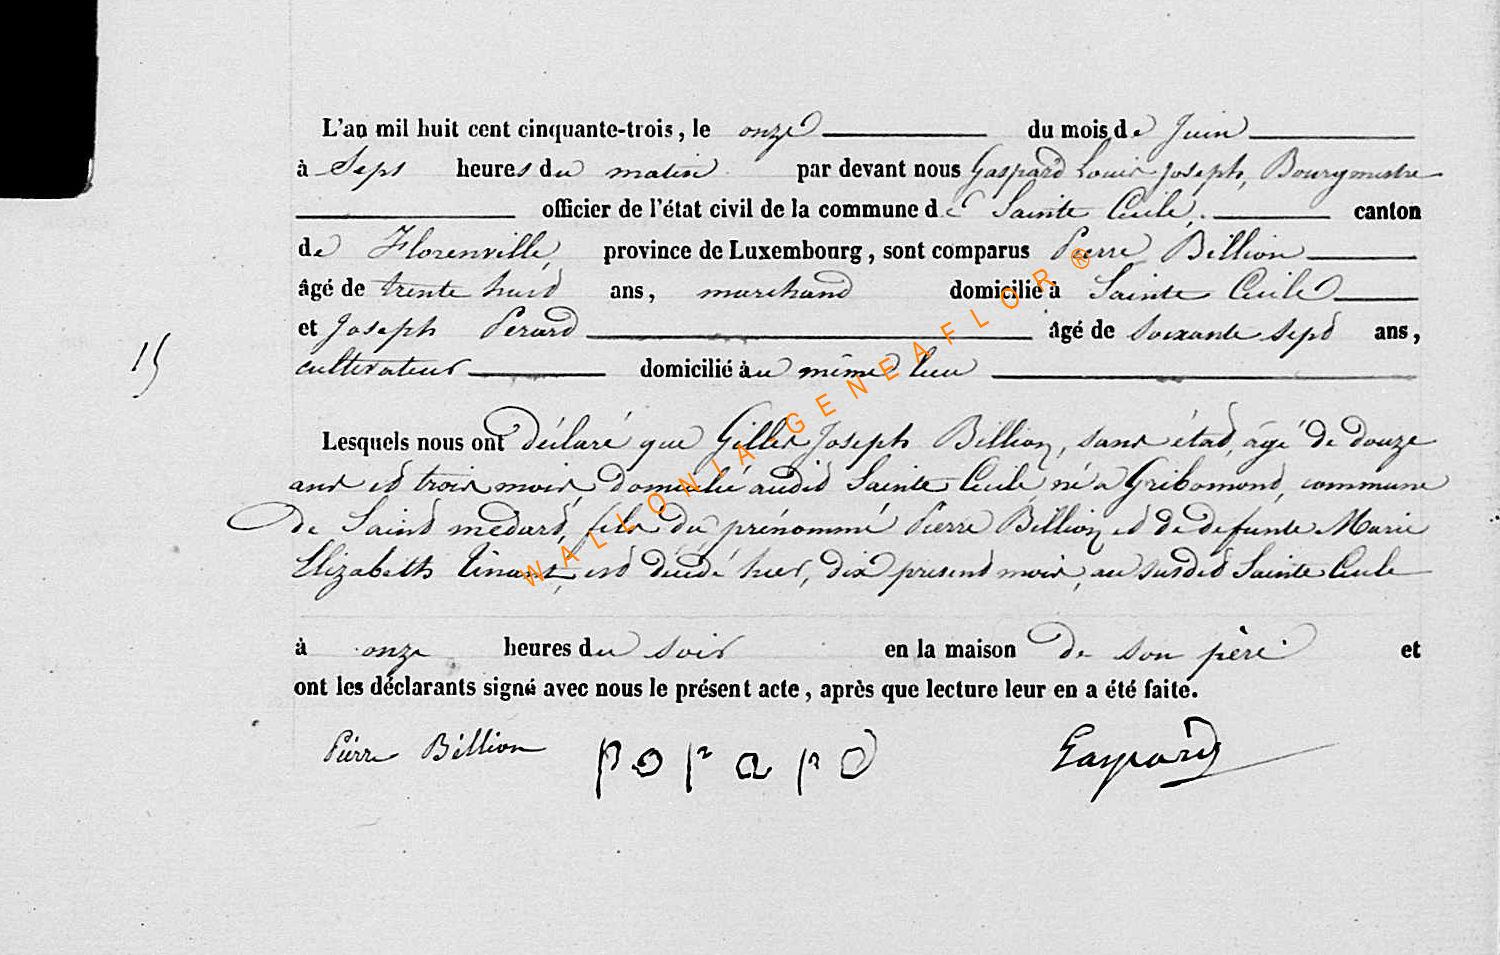 L'an mil huit cent cinquante-trois, le onze du mois de Juin
à Sept heures du matin par devant nous Gaspard Louis Joseph, Bourgmestre
officier de l'état civil de la commune de Sainte Cécile, canton
de Florenville, province de Luxembourg, sont comparus Pierre Billion
âgé de trente huit ans, marchand domicilié à Sainte Cécile
et Joseph Perard âgé de soixante sept ans,
15
cultivateur domicilié au même lieu
Lesquels nous ont déclaré que Gilles Joseph Billion, sans état, âgé de douze
ans et trois mois, domicilié audit Sainte Cécile né à Gribomond, commune
de Saint médard, fils du prénommé Pierre Billion et de defunte Marie
Elizabeth Tinant, est décédé hier, dix present mois, au susdit Sainte Cécile
à onze heures du soir en la maison de son père et
ont les déclarants signé avec nous le présent acte, après que lecture leur en a été faite.
Pierre Billion porapd Gaspard
WALLONIA-GENEAFLOR ®